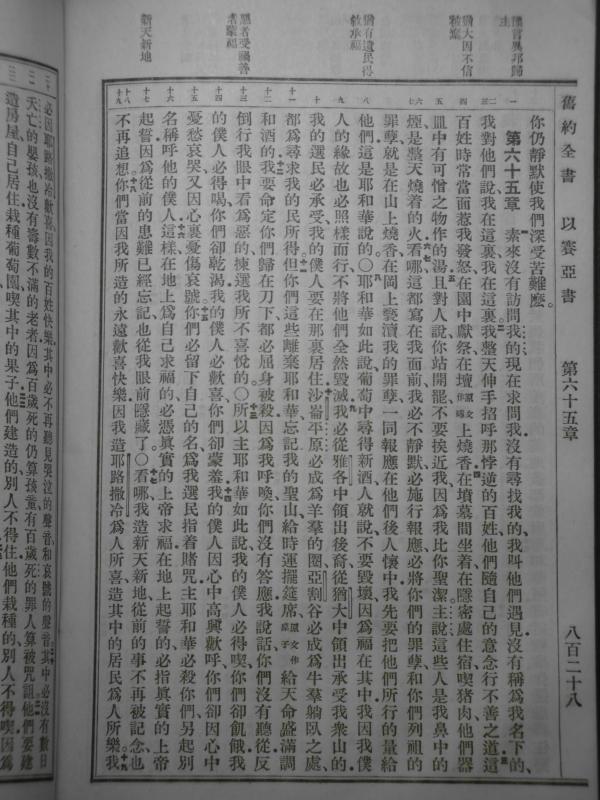 舊約全書 以賽亞書 第六十五章 八百二十八
預言異邦歸主
猶大因不信被棄
猶有遺民得救承福
惡者受禍善者蒙福
新天新地
你仍靜默使我們深受苦難麼。
第六十五章 素來沒有訪問我的現在求問我沒有尋找我的我叫他們遇見沒有稱爲我名下的、
我對他們說我在這裏我在這裏我整天伸手招呼那悖逆的百姓他們隨自己的意念行不善之道這
百姓時常當面惹我發怒在園中獻祭在壇原文作磚上燒香在墳墓間坐着在隱密處住宿喫猪肉他們器
皿中有可憎之物作的湯且對人說你站開罷不要挨近我因爲我比你聖潔主說這些人是我鼻中的
煙是整天燒着的火看哪這都寫在我面前我必不靜默必施行報應必將你們的罪孽和你們列祖的
罪孽就是在山上燒香在岡上褻瀆我的罪孽一同報應在他們後人懷中我先要把他們所行的量給
他們這是耶和華說的○耶和華如此說葡萄中尋得新酒人就說不要毀壞因爲福在其中我因我僕
人的緣故也必照樣而行不將他們全然毀滅我必從雅各中領出後裔從猶大中領出承受我衆山的
我的選民必承受我的僕人要在那裏居住沙崙平原必成爲羊羣的圈亞割谷必成爲牛羣躺臥之處、
都爲尋求我的民所得但你們這些離棄耶和華忘記我的聖山給時運擺筵席、原文作桌子給天命盛滿調
和酒的我要命定你們歸在刀下都必屈身被殺因爲我呼喚你們沒有答應我說話你們沒有聽從反
倒行我眼中看爲惡的揀選我所不喜悅的○所以主耶和華如此說我的僕人必得喫你們卻飢餓我
的僕人必得喝你們卻乾渴我的僕人必歡喜你們卻蒙羞我的僕人因心中高興歡呼你們卻因心中
憂愁哀哭又因心裏憂傷哀號你們必留下自己的名爲我選民指着賭咒主耶和華必殺你們另起別
名稱呼他的僕人這樣在地上爲自己求福的必憑眞實的上帝求福在地上起誓的必指眞實的上帝
起誓因爲從前的患難已經忘記也從我眼前隱藏了○看哪我造新天新地從前的事不再被記念也
不再追想你們當因我所造的永遠歡喜快樂因我造耶路撒冷爲人所喜造其中的居民爲人所樂我
必因耶路撒冷歡喜因我的百姓快樂其中必不再聽見哭泣的聲音和哀號的聲音其中必沒有數日
夭亡的嬰孩也沒有壽數不滿的老者因爲百歲死的仍算孩童有百歲死的罪人算被咒詛他們要建
造房屋自己居住栽種葡萄園喫其中的果子他們建造的別人不得住他們栽種的別人不得喫因爲